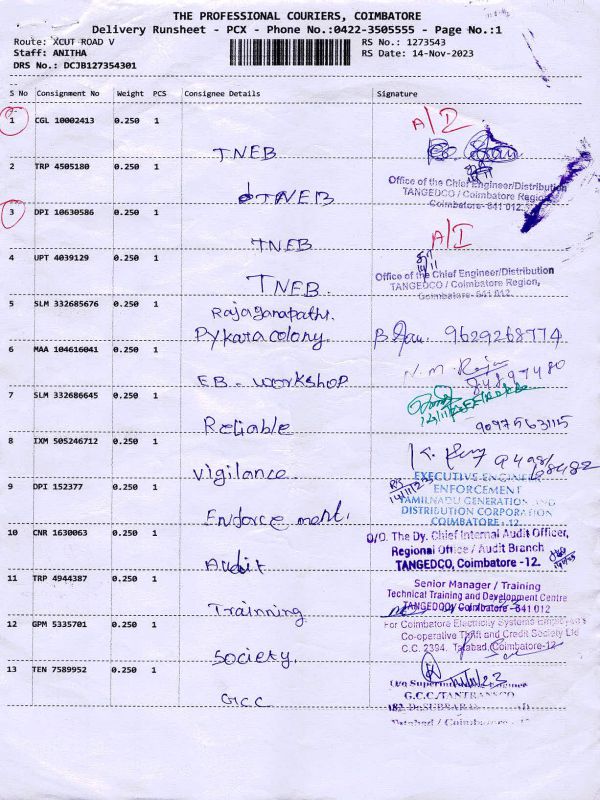 THE PROFESSIONAL COURIERS, COIMBATORE
Delivery Runsheet - PCX - Phone No.:0422-3505555 - Page No.:1
Route: XCUT ROAD V
RS No.: 1273543
Staff: ANITHA
RS Date: 14-Nov-2023
DRS No.: DCJB127354301
S No Consignment No Weight PCS Consignee Details Signature
1 CGL 10002413 0.250 1 A/I
TNEB
2 TRP 4505180 0.250 1
Office of the Chief Engineer/Distribution
TNEB
TANGEDCO / Coimbatore Region
Coimbatore-641 012
3 DPI 10630586 0.250 1
TNEB A/I
4 UPT 4039129 0.250 1
Office of the Chief Engineer/Distribution
TNEB.
TANGEDCO / Coimbatore Region,
Coimbatore-641 012.
5 SLM 332685676 0.250 1
Rajaganapathi.
Pykara colony. 9629268774
6 MAA 104616041 0.250 1
EB. workshop
7 SLM 332686645 0.250 1
Reliable 9097563115
8 IXM 505246712 0.250 1
Vigilance.
EXECUTIVE ENGINEER
9 DPI 152377 0.250 1
ENFORCEMENT
TAMILNADU GENERATION AND
DISTRIBUTION CORPORATION
Enforcement.
COIMBATORE - 12
10 CNR 1630063 0.250 1
O/O. The Dy. Chief Internal Audit Officer,
Regional Office / Audit Branch
Audit
TANGEDCO, Coimbatore -12.
11 TRP 4944387 0.250 1
Senior Manager / Training
Technical Training and Development Centre
Trainning
TANGEDCO / Coimbatore - 641 012
12 GPM 5335701 0.250 1
For Coimbatore Electricity Systems Employee's
Co-operative Thrift and Credit Society Ltd
C.C. 2394, Tatabad, Coimbatore-12
Society.
13 TEN 7589952 0.250 1
GCC
G.C.C/TANTRANSCO
Tatabad / Coimbatore